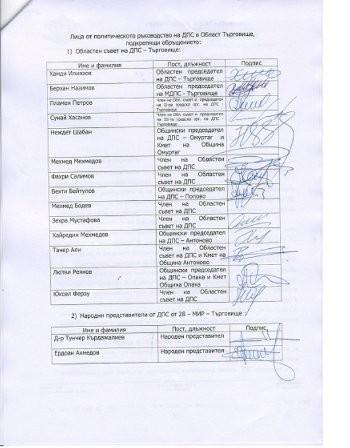 Лица от политическото ръководство на ДПС в Област Търговище,
подкрепящи обръщението:
1) Областен съвет на ДПС – Търговище:
Име и фамилия Пост, длъжност Подпис
Хамди Илиязов Областен председател на ДПС - Търговище
Берхан Назимов Областен председател на МДПС - Търговище
Пламен Петров Член на Обл. съвет и председател на
Сунай Хасанов Член на Обл. съвет и председател на
Неждет Шабан Общински председател на ДПС – Омуртаг и Кмет на Община Омуртаг
Мехмед Мехмедов Член на Областен съвет на ДПС
Фахри Салимов Член на Областен съвет на ДПС
Вехти Бейтулов Общински председател на ДПС – Попово
Мехмед Бодев Член на Областен съвет на ДПС
Зехра Мустафова Член на Областен съвет на ДПС
Хайредин Мехмедов Общински председател на ДПС – Антоново
Танер Али Член на Областен съвет на ДПС и Кмет на Община Антоново
Лютви Реянов Общински председател на ДПС – Опака и Кмет Община Опака
Юксел Ферзу Член на Областен съвет на ДПС
2) Народни представители от ДПС от 28 – МИР – Търговище :
Име и фамилия Пост, длъжност Подпис
Д-р Тунчер Кърджалиев Народен представител
Ердоан Ахмедов Народен представител